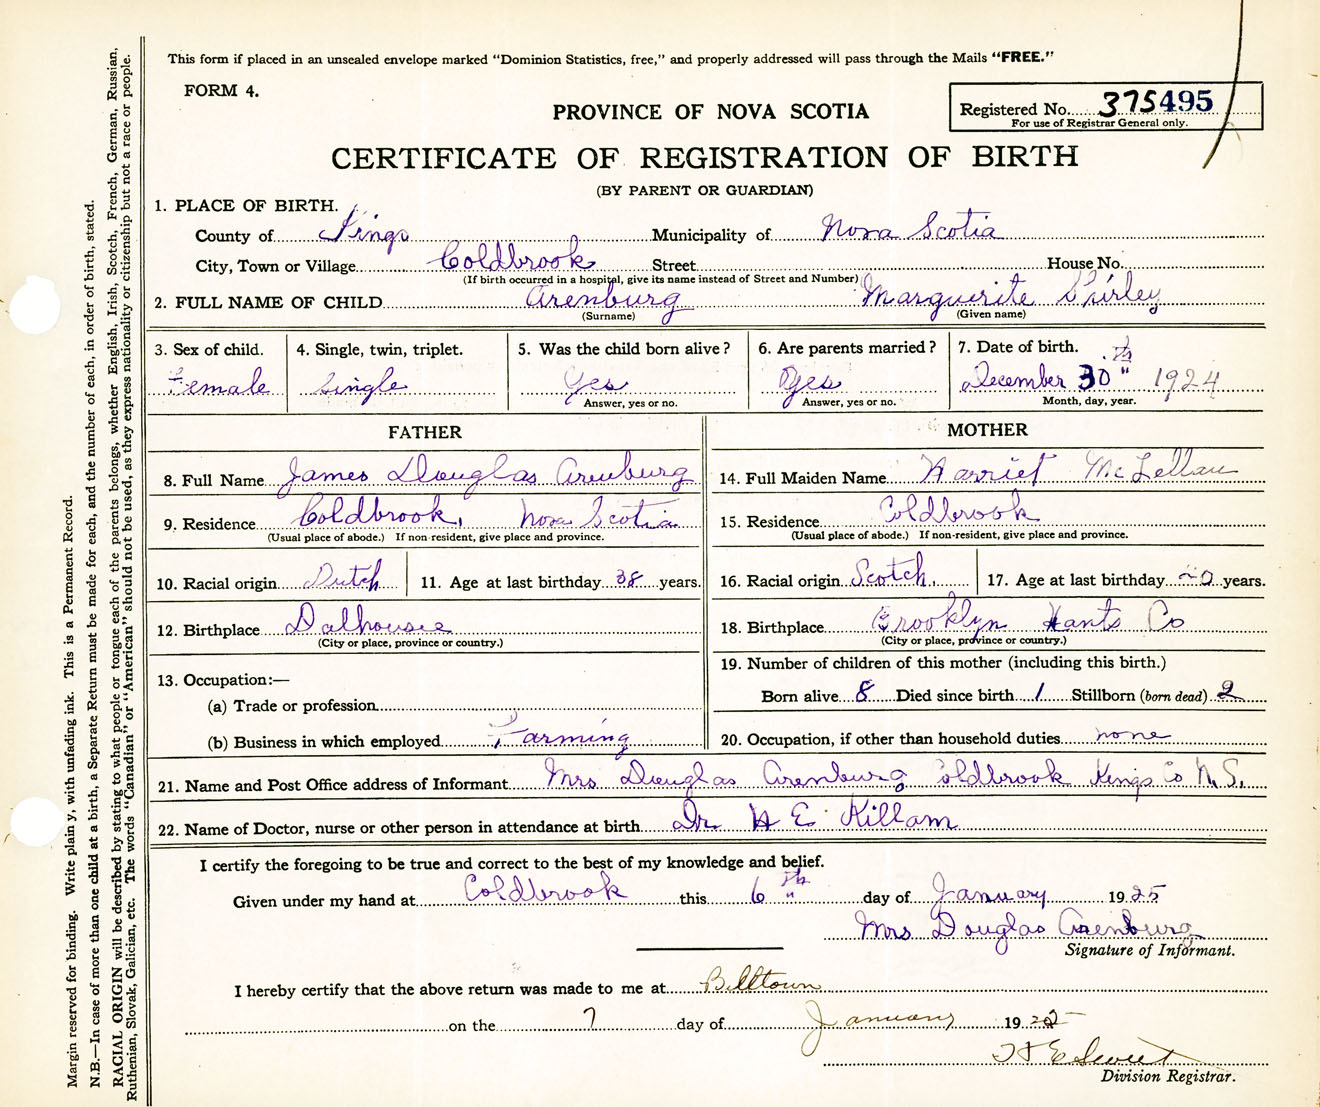 This form if placed in an unsealed envelope marked "Dominion Statistics, free," and properly addressed will pass through the Mails "FREE."
FORM 4.
PROVINCE OF NOVA SCOTIA
Registered No. 375495
For use of Registrar General only.
CERTIFICATE OF REGISTRATION OF BIRTH
(BY PARENT OR GUARDIAN)
1. PLACE OF BIRTH.
County of Kings Municipality of Nova Scotia
City, Town or Village Coldbrook Street House No.
(If birth occurred in a hospital, give its name instead of Street and Number)
2. FULL NAME OF CHILD Arenburg Marguerite Shirley
(Surname) (Given name)
3. Sex of child. 4. Single, twin, triplet. 5. Was the child born alive? 6. Are parents married? 7. Date of birth.
Female Single Yes Yes December 30th 1924
Answer, yes or no. Answer, yes or no. Month, day, year.
FATHER MOTHER
8. Full Name James Douglas Arenburg 14. Full Maiden Name Harriet McLellan
9. Residence Coldbrook, Nova Scotia 15. Residence Coldbrook
(Usual place of abode.) If non-resident, give place and province. (Usual place of abode.) If non-resident, give place and province.
10. Racial origin Dutch 11. Age at last birthday 38 years. 16. Racial origin Scotch. 17. Age at last birthday years.
12. Birthplace Dalhousie 18. Birthplace Brooklyn Hants Co
(City or place, province or country.) (City or place, province or country.)
13. Occupation:— 19. Number of children of this mother (including this birth.)
(a) Trade or profession Born alive 8 Died since birth 1 Stillborn (born dead) 2
(b) Business in which employed Farming 20. Occupation, if other than household duties none
21. Name and Post Office address of Informant Mrs Douglas Arenburg Coldbrook Kings Co N.S.
22. Name of Doctor, nurse or other person in attendance at birth Dr H E Killam
I certify the foregoing to be true and correct to the best of my knowledge and belief.
Given under my hand at Coldbrook this 6th day of January 1925
Mrs Douglas Arenburg
Signature of Informant.
I hereby certify that the above return was made to me at Billtown
on the 7 day of January 1925
H E Sweet
Division Registrar.
Margin reserved for binding. Write plainy, with unfading ink. This is a Permanent Record.
N.B.—In case of more than one child at a birth, a Separate Return must be made for each, and the number of each, in order of birth, stated.
RACIAL ORIGIN will be described by stating to what people or tongue each of the parents belongs, whether English, Irish, Scotch, French, German, Russian,
Ruthenian, Slovak, Galician, etc. The words "Canadian" or "American" should not be used, as they express nationality or citizenship but not a race or people.